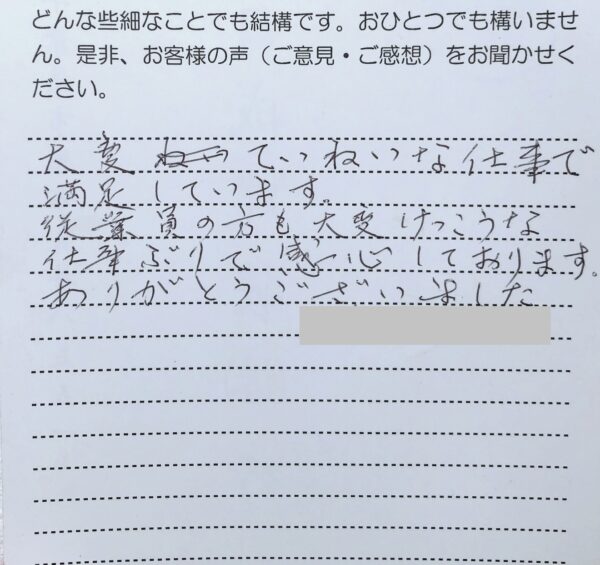 どんな些細なことでも結構です。おひとつでも構いませ
ん。是非、お客様の声（ご意見・ご感想）をお聞かせく
ださい。
大変 ていねいな仕事で
満足しています。
従業員の方も大変けっこうな
仕事ぶりで感心しております。
ありがとうございました